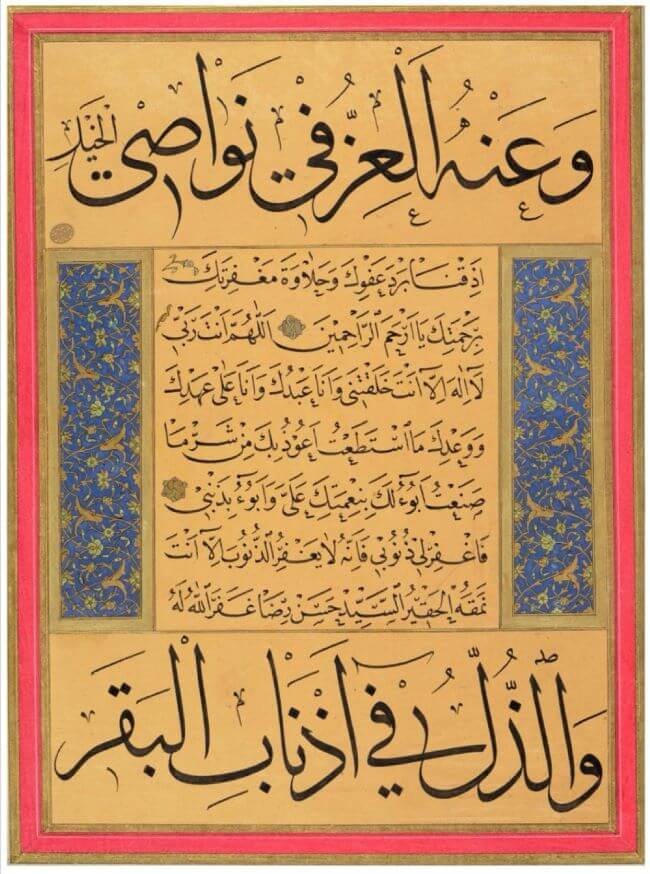 وَعَنْهُ الْعِزُّ فِي نَوَاصِي الْخَيْلِ
اَذِقْنَا بَرْدَ عَفْوِكَ وَحَلَاوَةَ مَغْفِرَتِكَ
بِرَحْمَتِكَ يَا اَرْحَمَ الرَّاحِمِينَ اَللّٰهُمَّ اَنْتَ رَبِّي
لَا اِلٰهَ اِلَّا اَنْتَ خَلَقْتَنِي وَاَنَا عَبْدُكَ وَاَنَا عَلٰى عَهْدِكَ
وَوَعْدِكَ مَا اسْتَطَعْتُ اَعُوذُ بِكَ مِنْ شَرِّ مَا
صَنَعْتُ اَبُوءُ لَكَ بِنِعْمَتِكَ عَلَيَّ وَاَبُوءُ بِذَنْبِي
فَاغْفِرْ لِي ذُنُوبِي فَاِنَّهُ لَا يَغْفِرُ الذُّنُوبَ اِلَّا اَنْتَ
نَمَقَهُ الْحَقِيرُ السَّيِّدْ حَسَنْ رِضَا غَفَرَ اللّٰهُ لَهُ
وَالذُّلُّ فِي اَذْنَابِ الْبَقَرِ